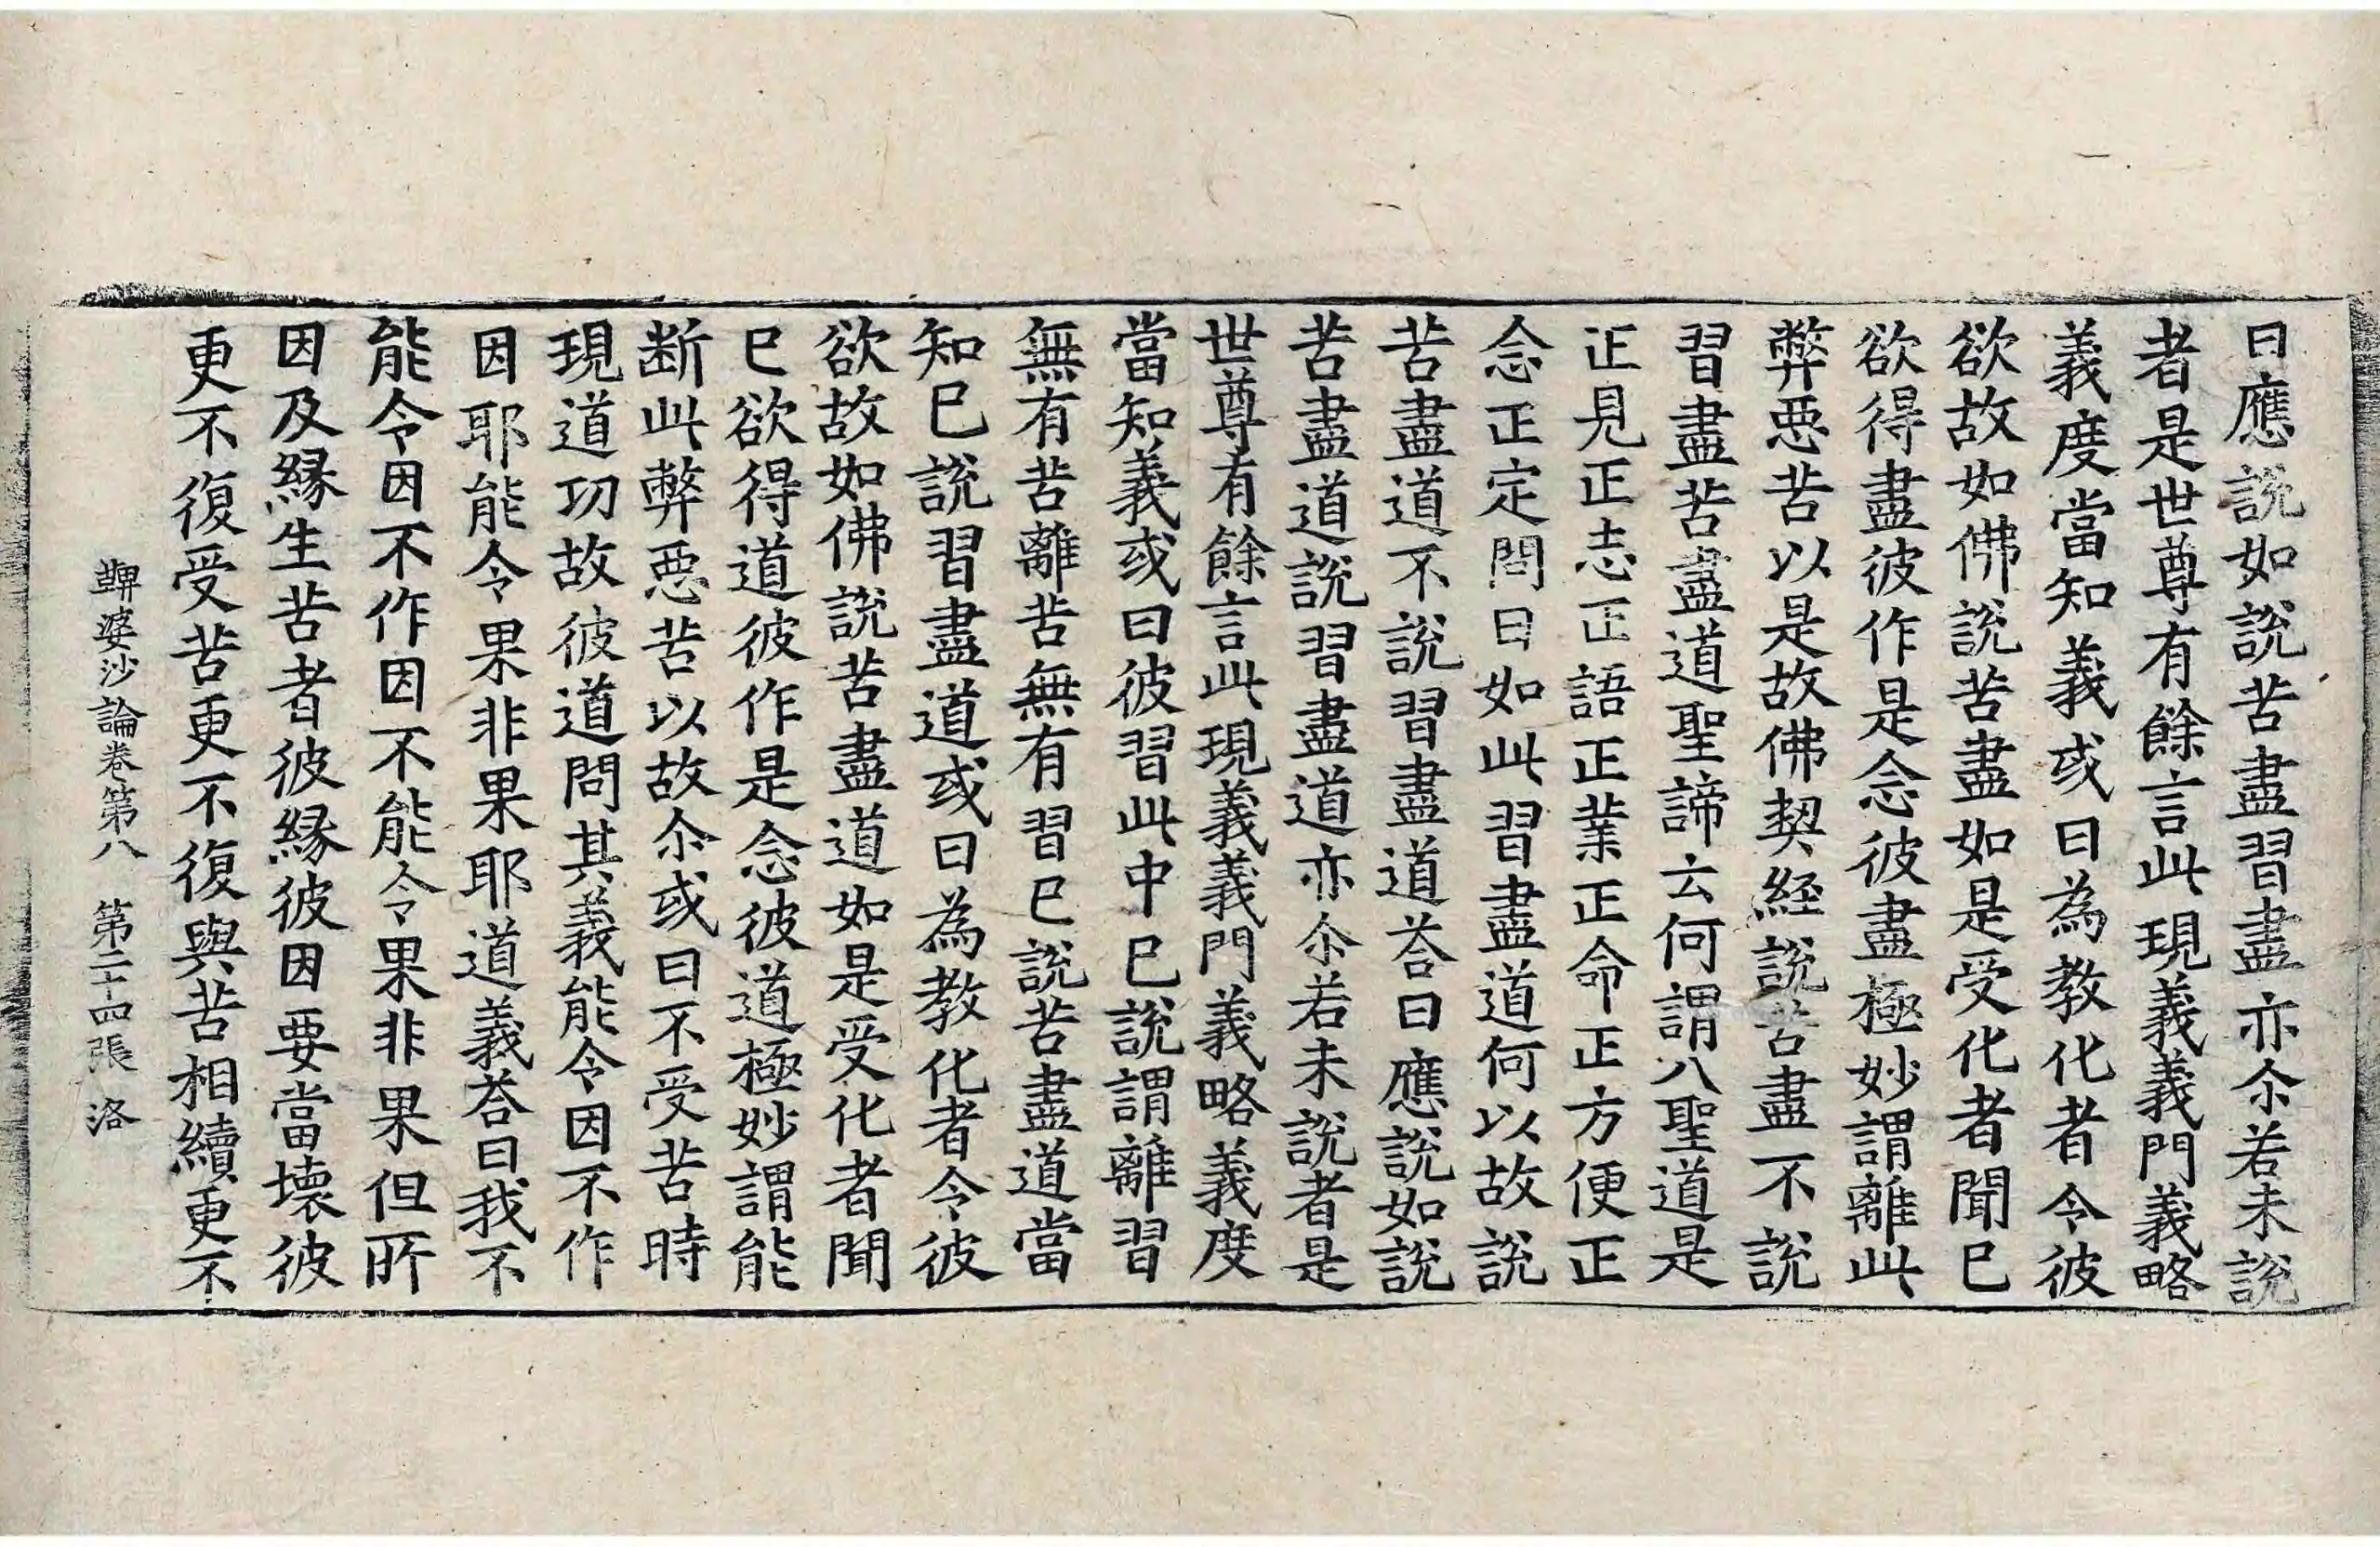 曰應說如說苦盡習盡亦尒若未說
者是世尊有餘言此現義義門義略
義度當知義或曰為教化者令彼
欲故如佛說苦盡如是受化者聞已
欲得盡彼作是念彼盡極妙謂離此
弊惡苦以是故佛契經說苦盡不說
習盡苦盡道聖諦云何謂八聖道是
正見正志正語正業正命正方便正
念正定問曰如此習盡道何以故說
苦盡道不說習盡道荅曰應說如說
苦盡道說習盡道亦尒若未說者是
世尊有餘言此現義義門義略義度
當知義或曰彼習此中已說謂離習
無有苦離苦無有習已說苦盡道當
知已說習盡道或曰為教化者令彼
欲故如佛說苦盡道如是受化者聞
已欲得道彼作是念彼道極妙謂能
断此弊惡苦以故尒或曰不受苦時
現道功故彼道問其義能令因不作
因耶能令果非果耶道義荅曰我不
能令因不作因不能令果非果但所
因及緣生苦者彼緣彼因要當壞彼
更不復受苦更不復與苦相續更不
鞞婆沙論卷第八 第二十四張 洛